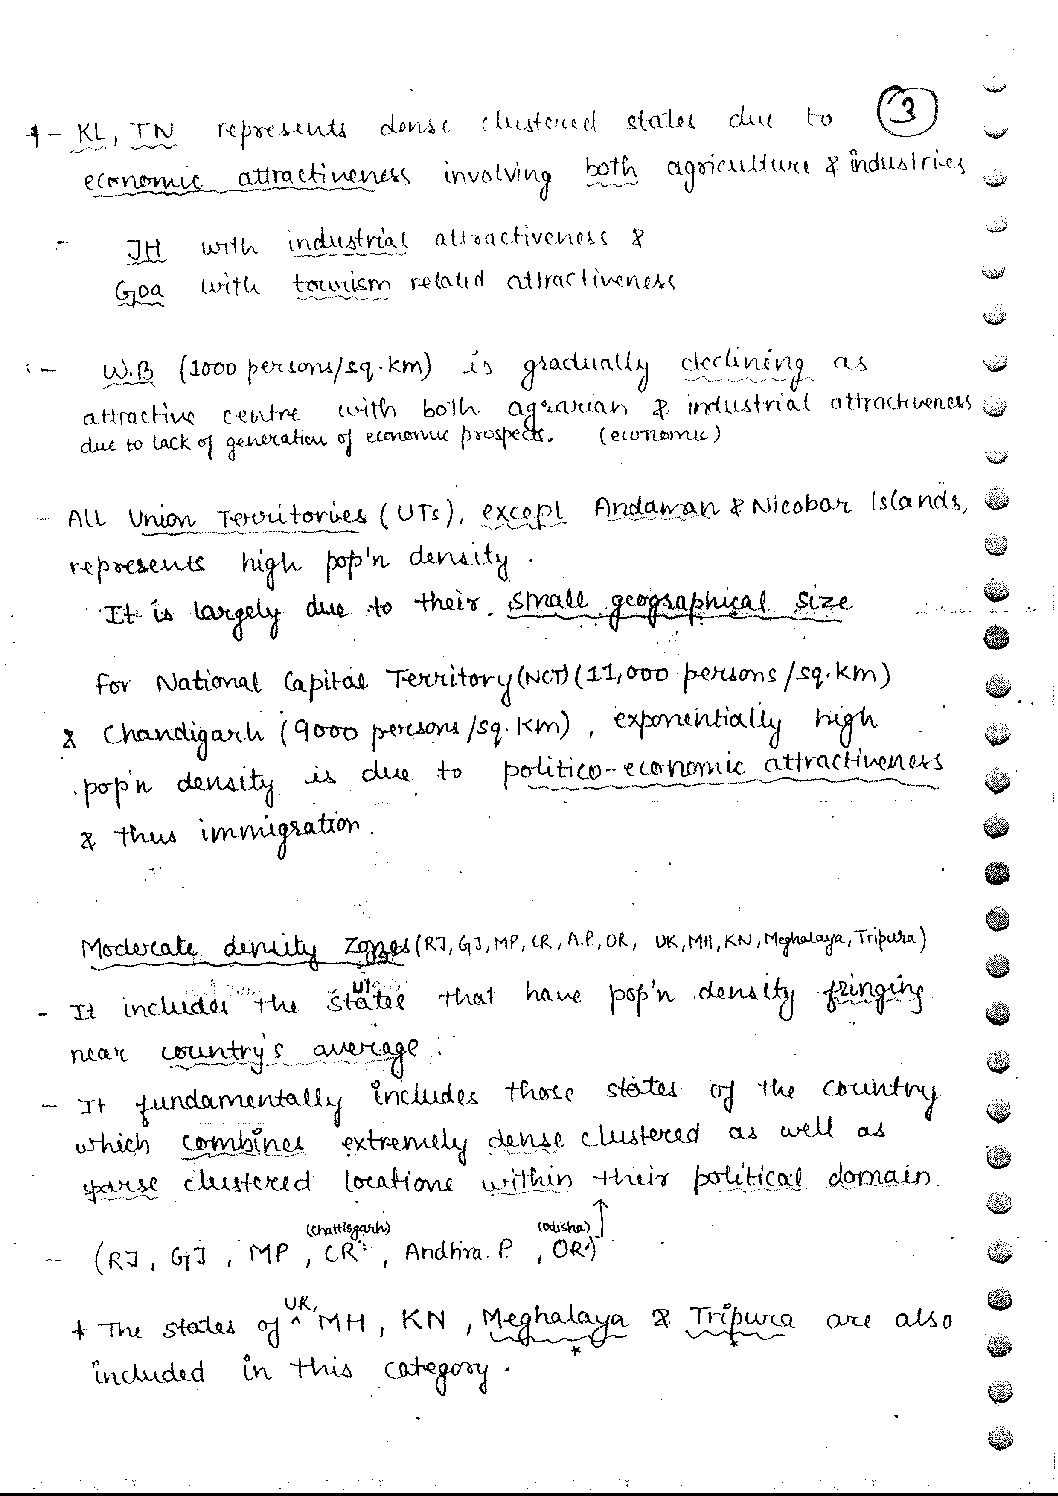 3
* – KL, TN represents dense clustered states due to
economic attractiveness involving both agriculture & industries
- JH with industrial attractiveness &
Goa with tourism related attractiveness
- W.B (1000 persons/sq.km) is gradually declining as
attractive centre with both agrarian & industrial attractiveness
due to lack of generation of economic prospects. (economic)
- All Union Territories (UTs), except Andaman & Nicobar Islands,
represents high pop'n density.
It is largely due to their small geographical size
For National Capital Territory (NCT) (11,000 persons/sq.km)
& Chandigarh (9000 persons/sq.km), exponentially high
pop'n density is due to politico-economic attractiveness
& thus immigration.
Moderate density zones (RJ, GJ, MP, CR, A.P, OR, UK, MH, KN, Meghalaya, Tripura)
- It includes the states that have pop'n density fringing
near country's average.
- It fundamentally includes those states of the country
which combines extremely dense clustered as well as
sparse clustered locations within their political domain
(Chattisgarh) (Odisha)
- (RJ, GJ, MP, CR, Andhra P., OR)
* The states of UK, MH, KN, Meghalaya & Tripura are also
included in this category.